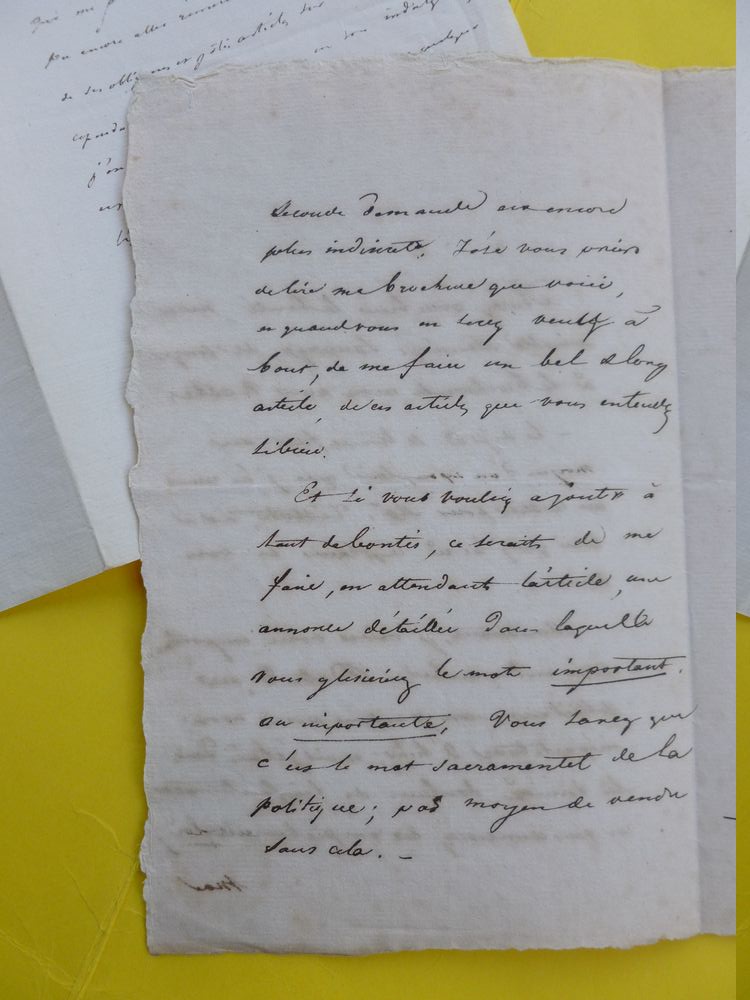 qui me
pas encore allé
de ses obligeances et jolis articles
cependa
j'on
Seconde demande est encore
plus indiscrète. J'ose vous prier
de lire ma brochure que voici,
et quand vous en serez venu à
bout, de me faire un bel & long
article, de ces articles que vous entendez
si bien.
Et si vous vouliez ajouter à
tant de bontés, ce serait de me
faire, en attendant l'article, une
annonce détaillée dans laquelle
vous glisseriez le mot important.
ou importante. Vous savez que
c'est le mot sacramentel de la
politique; pas moyen de vendre
sans cela. —